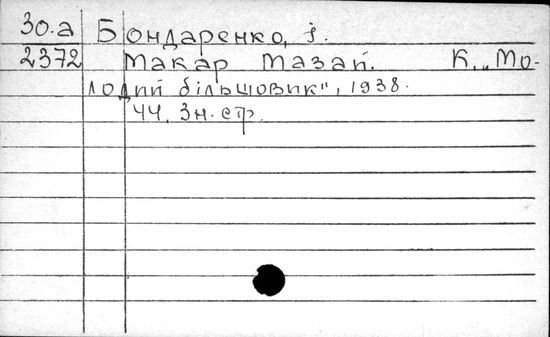 30.а Бондаренко, І.
2372 Макар Мазай. К. „Мо-
лодий більшовик", 1938.
44. 3н. стр.